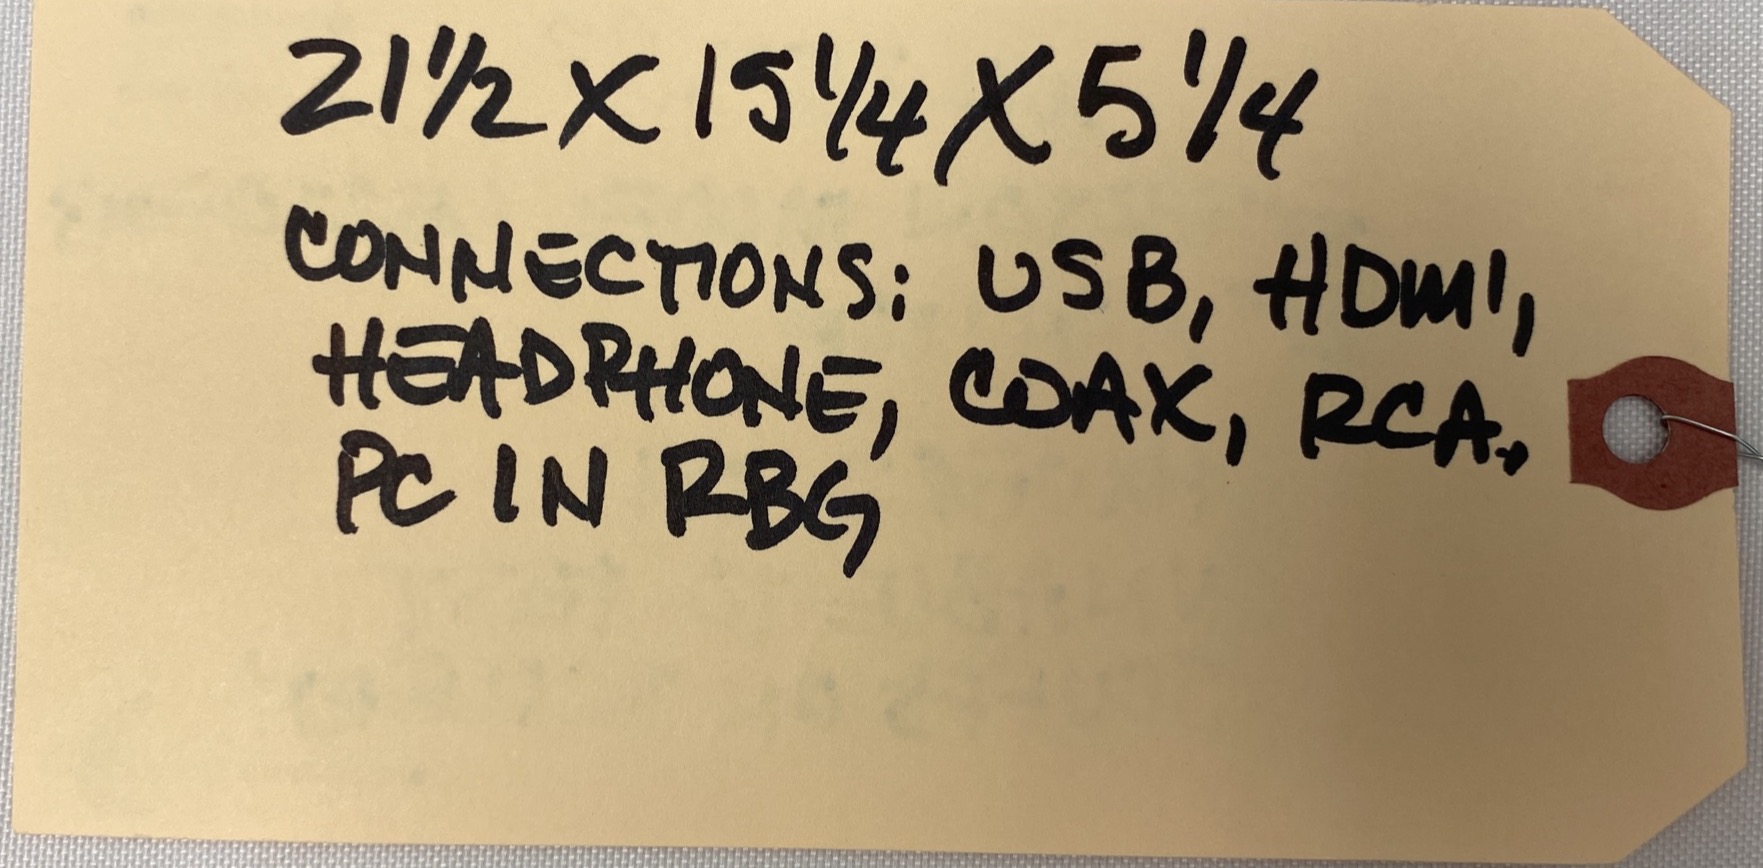 21 1/2 X 15 1/4 X 5 1/4
CONNECTIONS: USB, HDMI,
HEADPHONE, COAX, RCA,
PC IN RBG